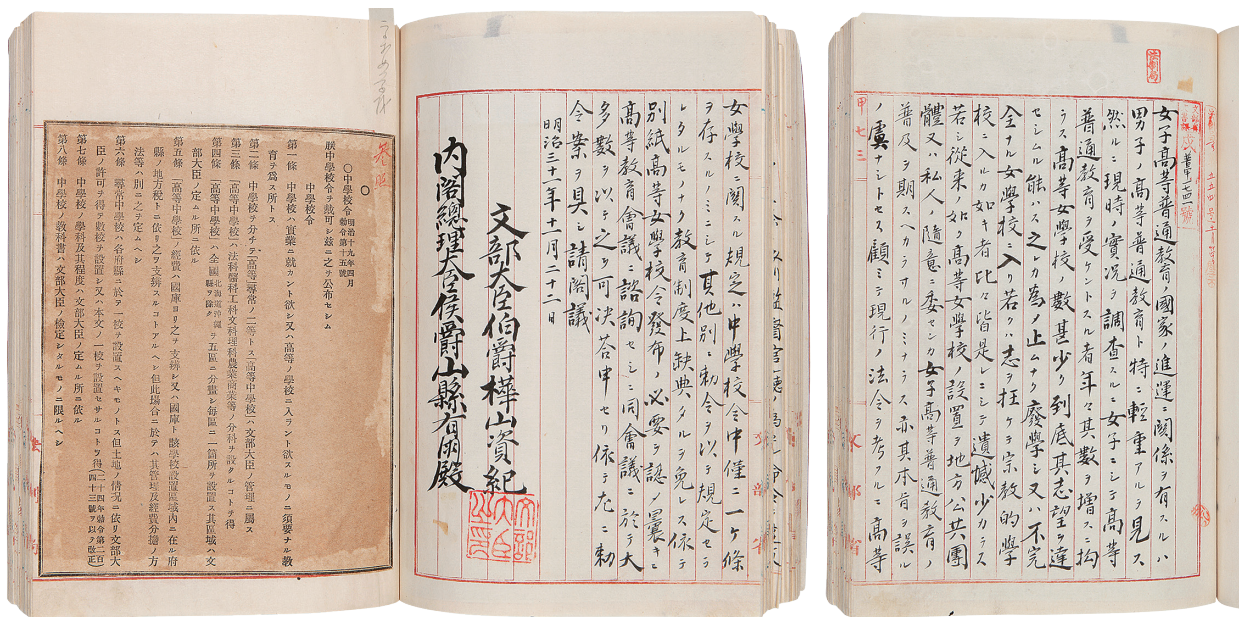 法制局
普甲一七四一號
女子高等普通教育ノ國家ノ進運ニ関係ヲ有スルハ
男子ノ高等普通教育ト特ニ輕重アルヲ見ス
然ルニ現時ノ實况ヲ調査スルニ女子ニシテ高等
普通教育ヲ受ケントスル者年々其數ヲ増スニ拘
ラス高等女學校ノ數甚少ク到底其志望ヲ達
セシムル能ハス之レカ為ノ止ムナク廢學シ又ハ不完
全ナル女學校ニ入リ若クハ志ヲ枉ケテ宗教的學
校ニ入ルカ如キ者比々皆是レニシテ遺憾少カラス
若シ従来ノ如ク高等女學校ノ設置ヲ地方公共團
體又ハ私人ノ隨意ニ委センカ女子高等普通教育ノ
普及ヲ期スヘカラサルノミナラス亦其本旨ヲ誤ル
ノ虞ナシトセス顧ミテ現行ノ法令ヲ考フルニ高等
甲七三
文部省
女學校ニ関スル規定ハ中學校令中僅ニ一ケ條
ヲ存スルノミニシテ其他別ニ勅令ヲ以テ規定セラ
レタルモノナク教育制度上缺典タルヲ免レス依テ
別紙高等女學校令發布ノ必要ヲ認ノ曩キニ
高等教育會議ニ諮詢セシニ同會議ニ於テ大
多數ヲ以テ之ヲ可决答申セリ依テ茲ニ勅
令案ヲ具シ請閣議
明治三十一年十一月二十二日
文部大臣伯爵樺山資紀
文部大臣之印
内閣總理大臣侯爵山縣有朋殿
参照
〇中學校令 明治十九年四月勅令第十五號
朕中學校令ヲ裁可シ玆ニ之ヲ公布セシム
中學校令
第一條 中學校ハ實業ニ就カント欲シ又ハ高等ノ學校ニ入ラント欲スルモノニ須要ナル教
育ヲ爲ス所トス
第二條 中學校ヲ分チテ高等尋常ノ二等トス高等中學校ハ文部大臣ノ管理ニ屬ス
第三條 「高等中學校」ハ法科醫科工科文科理科農業商業等ノ分科ヲ設クルコトヲ得
第四條 「高等中學校」ハ全國 北海道沖繩縣ヲ除ク ヲ五區ニ分畫シ毎區ニ一箇所ヲ設置ス其區域ハ文
部大臣ノ定ムル所ニ依ル
第五條 「高等中學校」ノ經費ハ國庫ヨリ之ヲ支辨シ又ハ國庫ト該學校設置區域内ニ在ル府
縣ノ地方稅トニ依リ之ヲ支辨スルコトアルヘシ但此場合ニ於テハ其管理及經費分擔ノ方
法等ハ別ニ之ヲ定ムヘシ
第六條 尋常中學校ハ各府縣ニ於テ一校ヲ設置スヘキモノトス但土地ノ情况ニ依リ文部大
臣ノ許可ヲ得テ數校ヲ設置シ又ハ本文ノ一校ヲ設置セサルコトヲ得(二十四年勅令第二百四十三號ヲ以テ改正)
第七條 中學校ノ學科及其程度ハ文部大臣ノ定ムル所ニ依ル
第八條 中學校ノ教科書ハ文部大臣ノ檢定シタルモノニ限ルヘシ